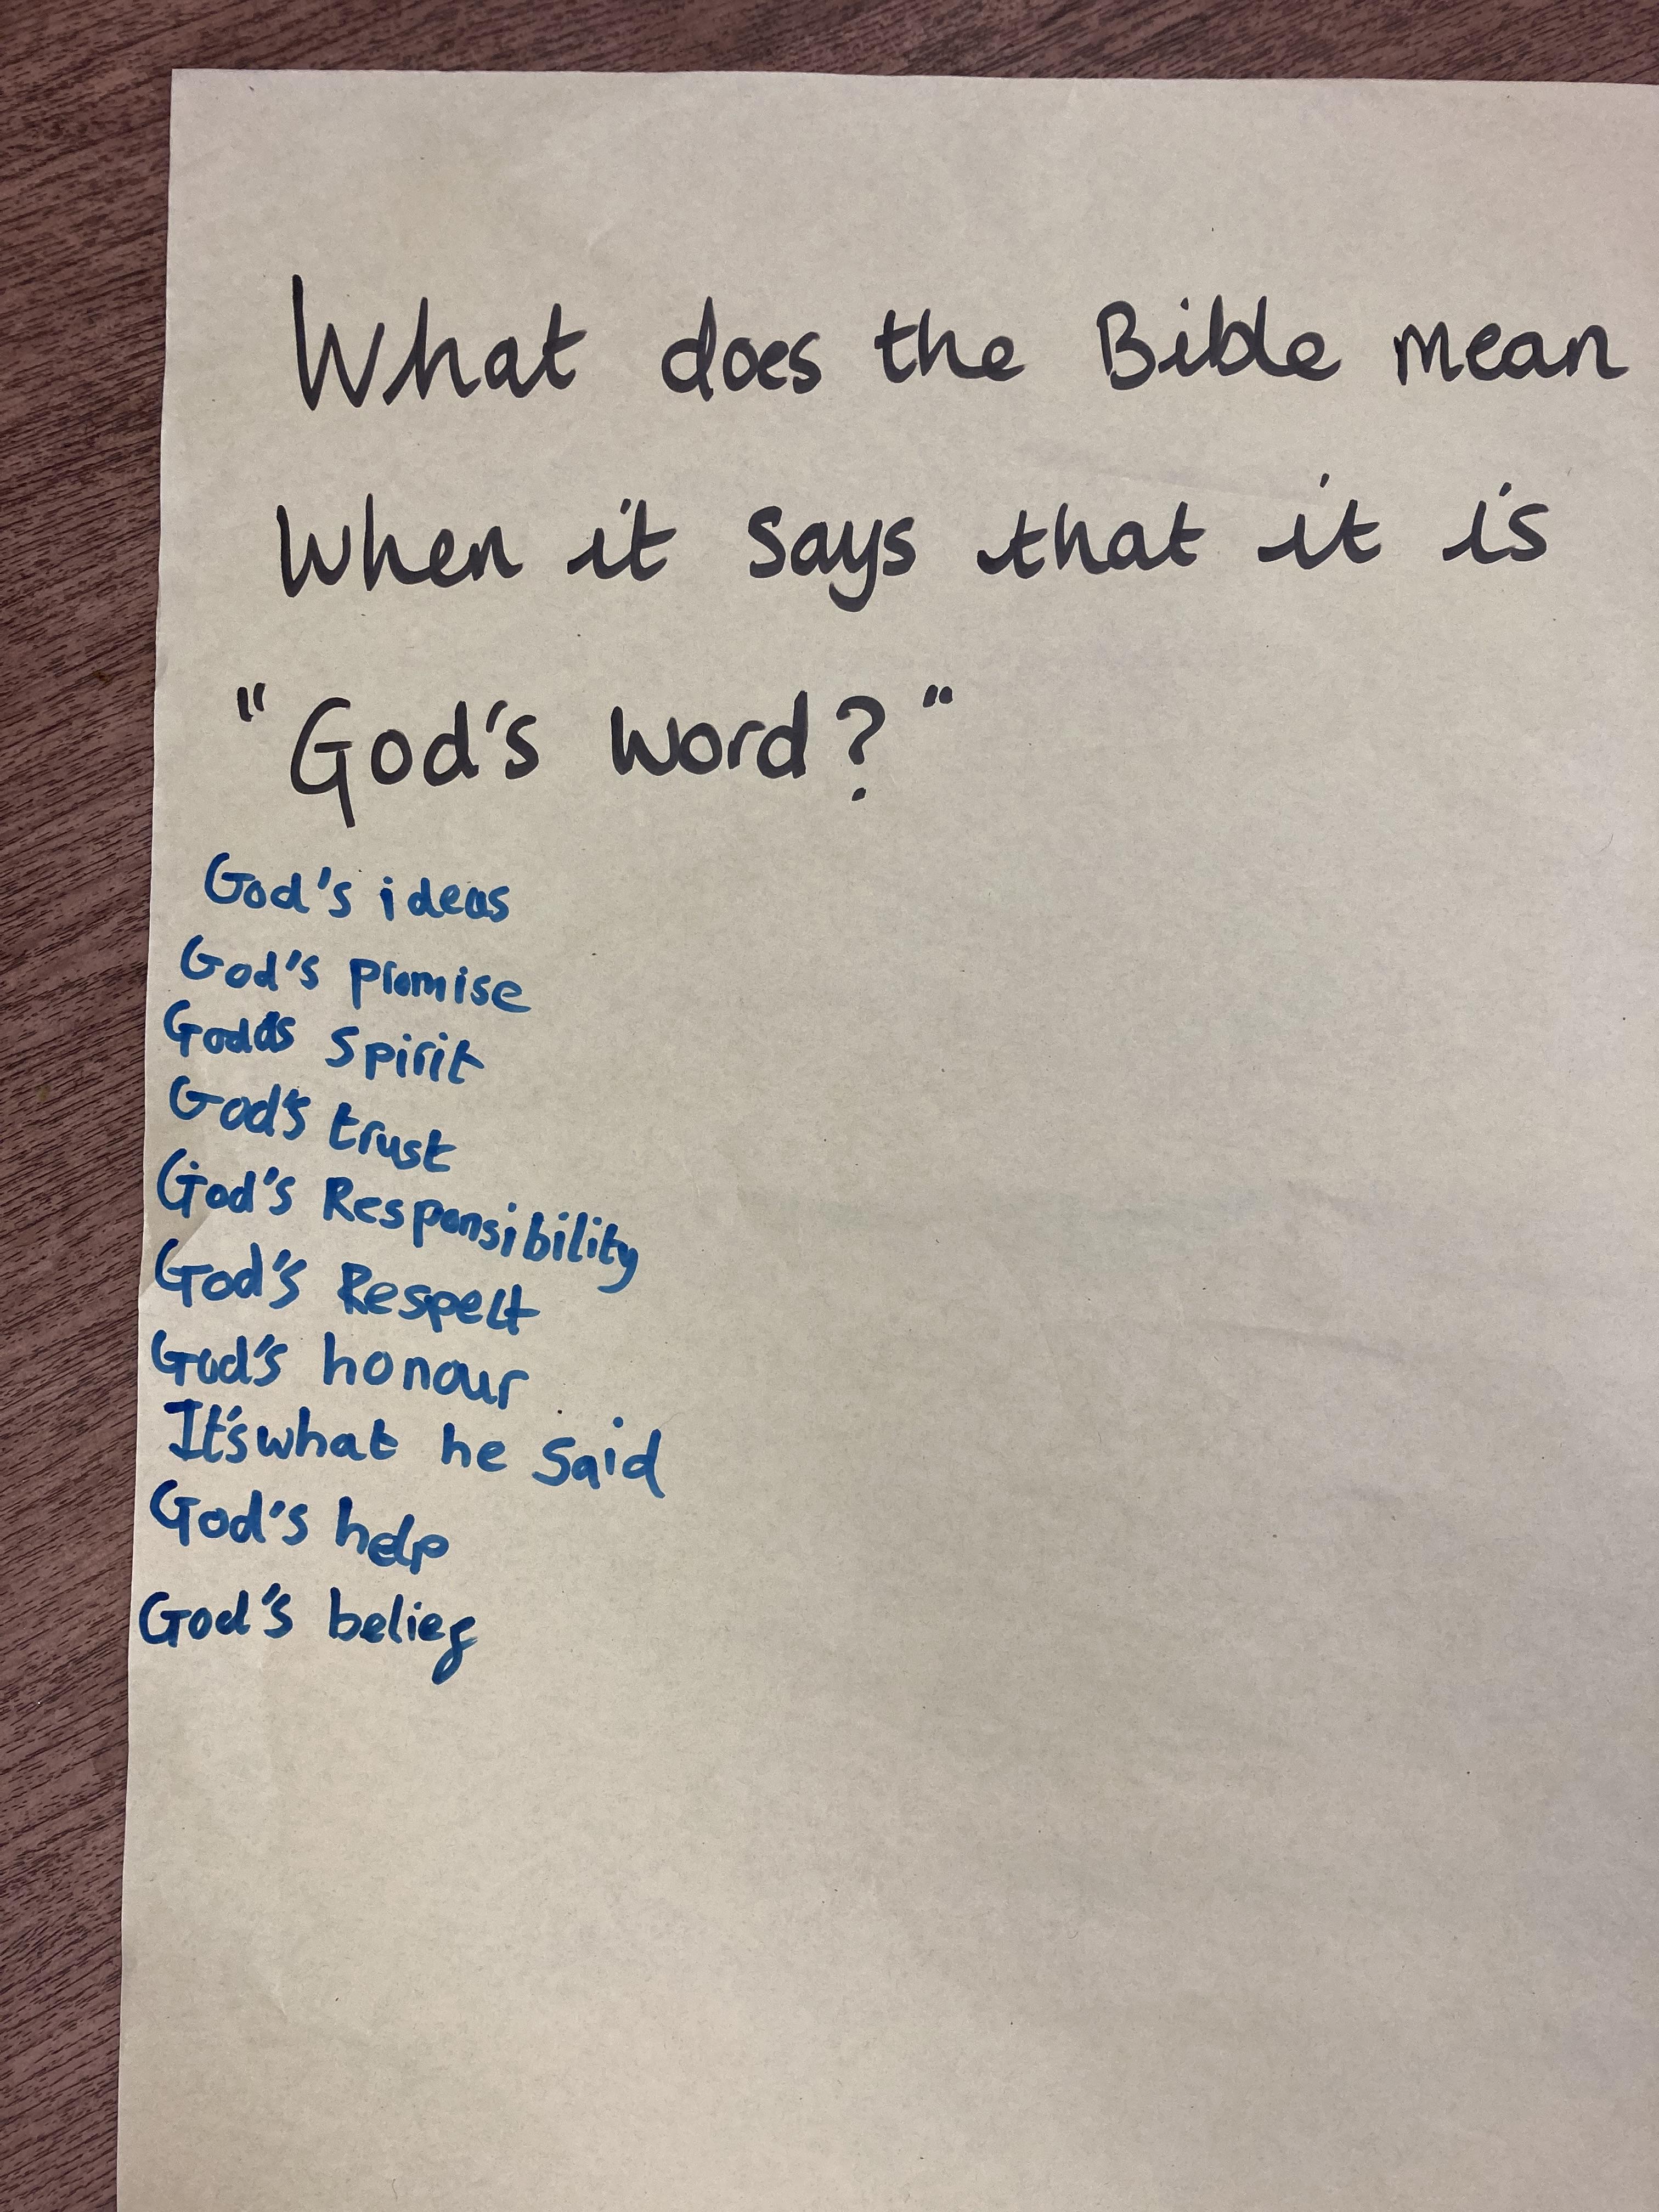 What does the Bible mean
When it says that it is
"God's word?"
God's ideas
God's promise
God's spirit
God's trust
God's Responsibility
God's Respect
God's honour
It's what he said
God's help
God's belief